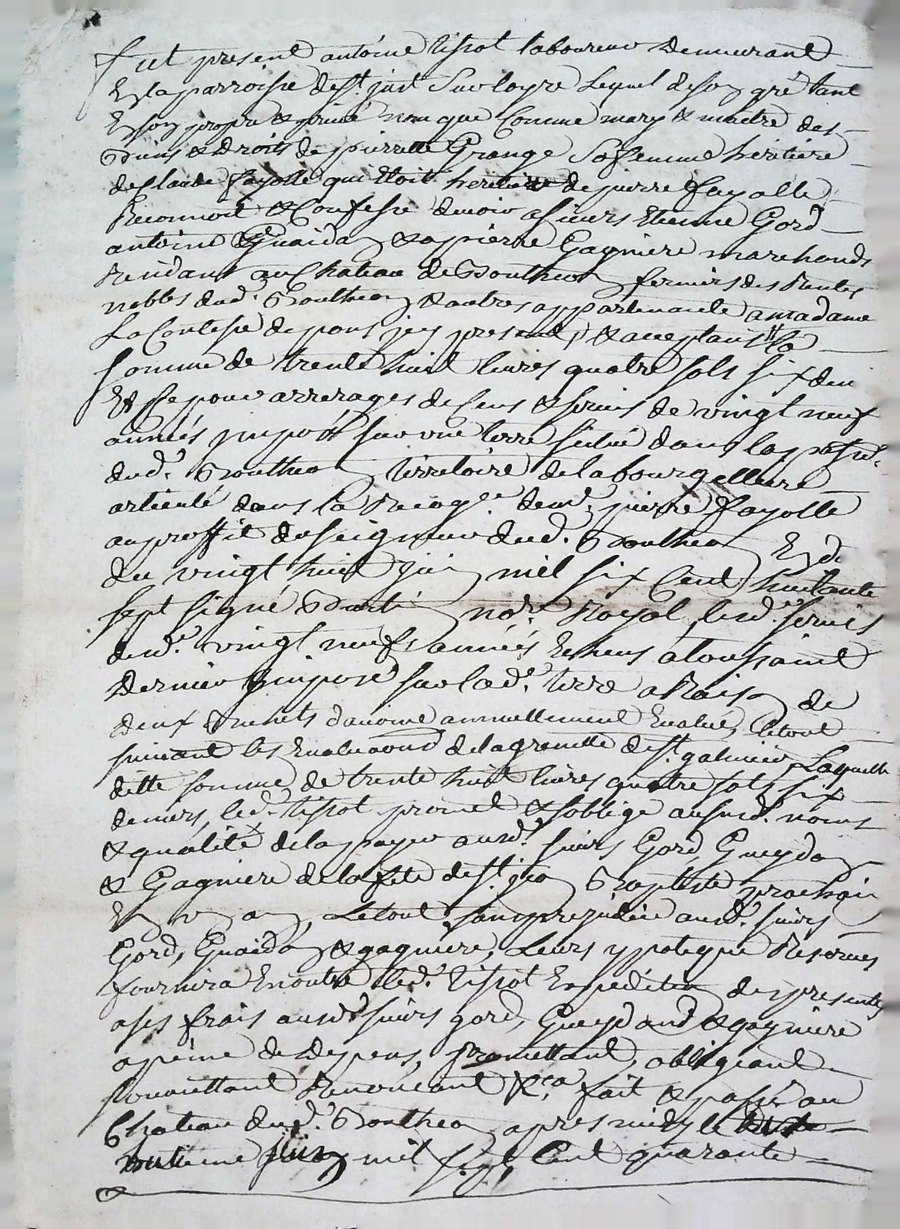 fut present antoine Tissot laboureur Demeurant
En la parroisse de st just sur loyre Lequel de son gré tant
En son propre & privé nom que Comme mary & maitre des
Biens & Droits de pierrette Grange Sa femme heritiere
de Claude fayolle qui Etoit heritier de pierre fayolle
Reconnoit & Confesse devoir a sieurs Etienne Gord
antoine Gueida & a pierre Gagniere marchands
Residants au Chateau de Boutheon fermiers des Rentes
nobles dud. Boutheon & autres appartenants a madame
La Contesse de pons icy presents & acceptants la
somme de trente huit livres quatre sols six den
Et Ce pour arrerages de Cens & servis de vingt neuf
années imposé sur une terre située dans la
dud. Boutheon territoire de la bourgellerie
articulé dans la Recog.e dud. pierre fayolle
au proffit du seigneur dud. Boutheon En de
du vingt huit juin mil six Cent huitante
sept signé no.re Royal, lesd. servis
desd. vingt neuf années Echeus a toussaint
Dernier & imposé sur lad. terre a Raison de
deux Bichets d'avoine annuellement Evalué, le tout
suivant les Evaluaons de la grenette de st. galmier, Laquelle
ditte somme de trente huit livres quatre sols six
deniers, led. Tissot promet & soblige aususd. noms
& qualité de la payer ausd. sieurs Gord Gueyda
& Gagniere de la fete de st. jean Baptiste prochain
En un an, Le tout sans prejudice ausd. sieurs
Gord, Gueida & gagniere, Leurs ypoteque Reservés
fournira En outre led. Tissot Expedition des presentes
a ses frais ausd. sieurs gord, Gueyd and & gagniere
a peine de Depens, promettant, obligeant
soumettant Renoncant &ca. fait & passé au
Chateau dud. Boutheon apres midy le
huitieme juin mil sept Cent quarante